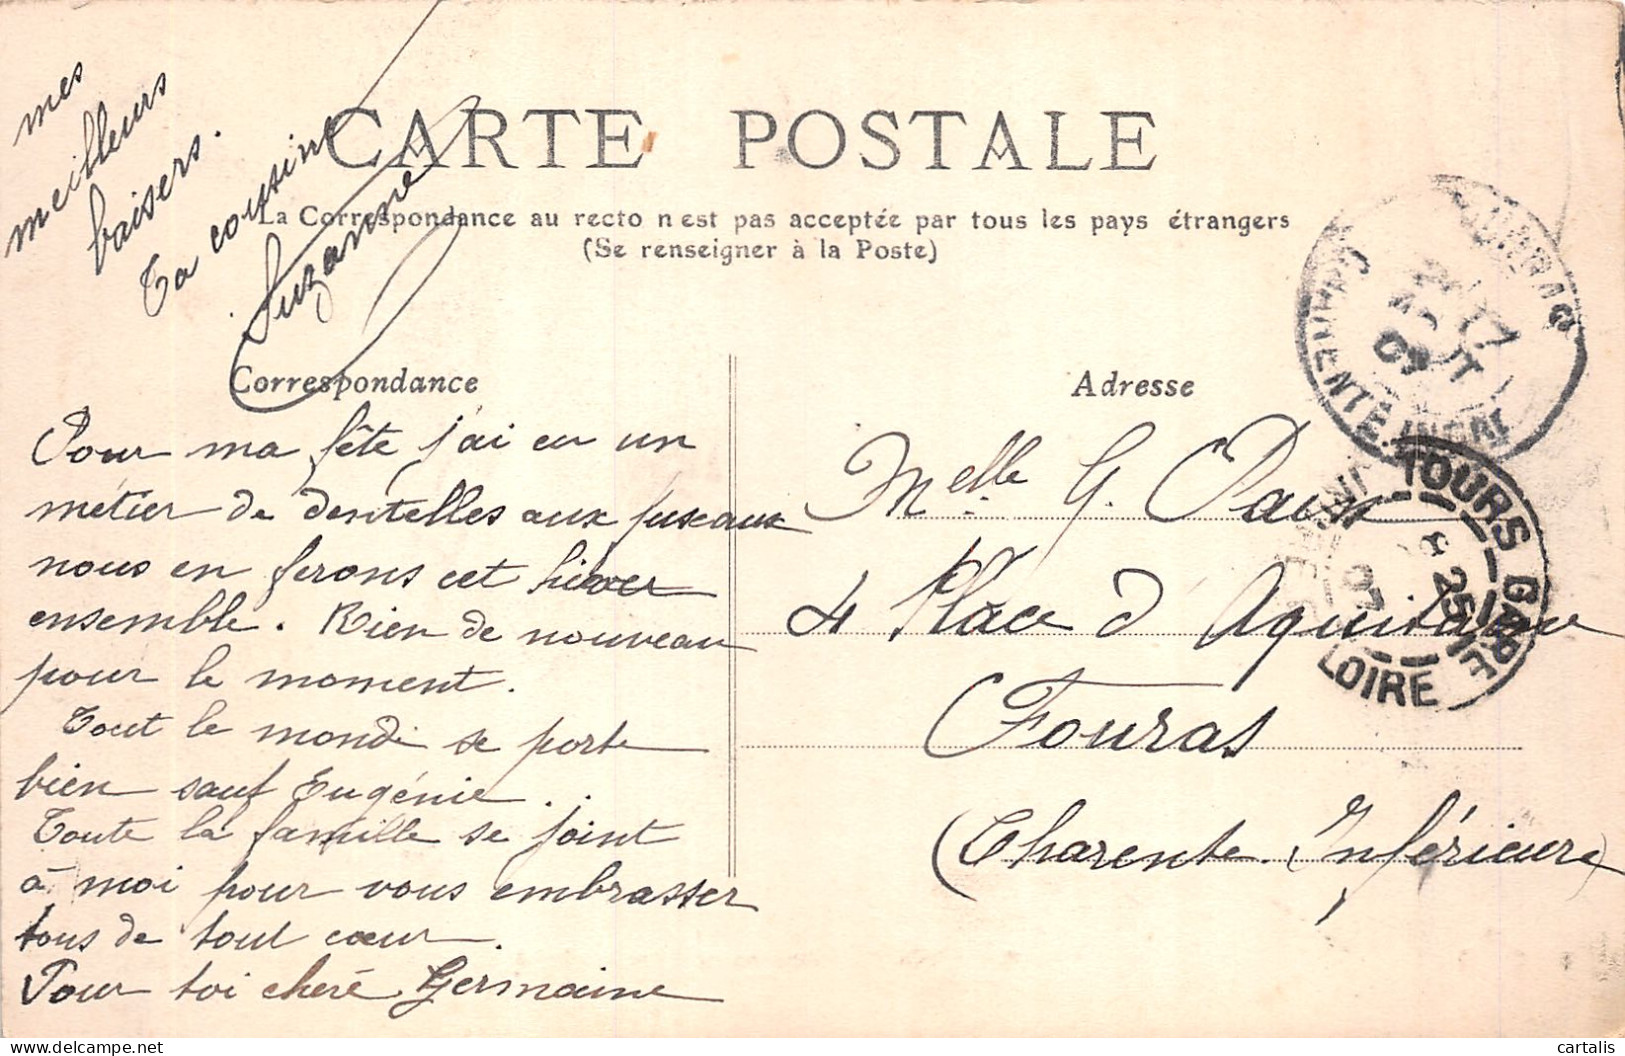 CARTE POSTALE
La Correspondance au recto n'est pas acceptée par tous les pays étrangers
(Se renseigner à la Poste)
Correspondance
Adresse
Pour ma fête j'ai eu un
métier de dentelles aux fuseaux
nous en ferons cet hiver
ensemble. Rien de nouveau
pour le moment.
Tout le monde se porte
bien sauf Eugénie...
Toute la famille se joint
à moi pour vous embrasser
tous de tout cœur.
Pour toi chère Germaine
mes
meilleurs
baisers.
Ta cousine
Suzanne
Melle G.
4 Place d'Aquitaine
Fouras
(Charente-Inférieure)
CHARENTE INFRE
17
AOUT
TOURS GARE
INDRE ET LOIRE
25
07
cartalis